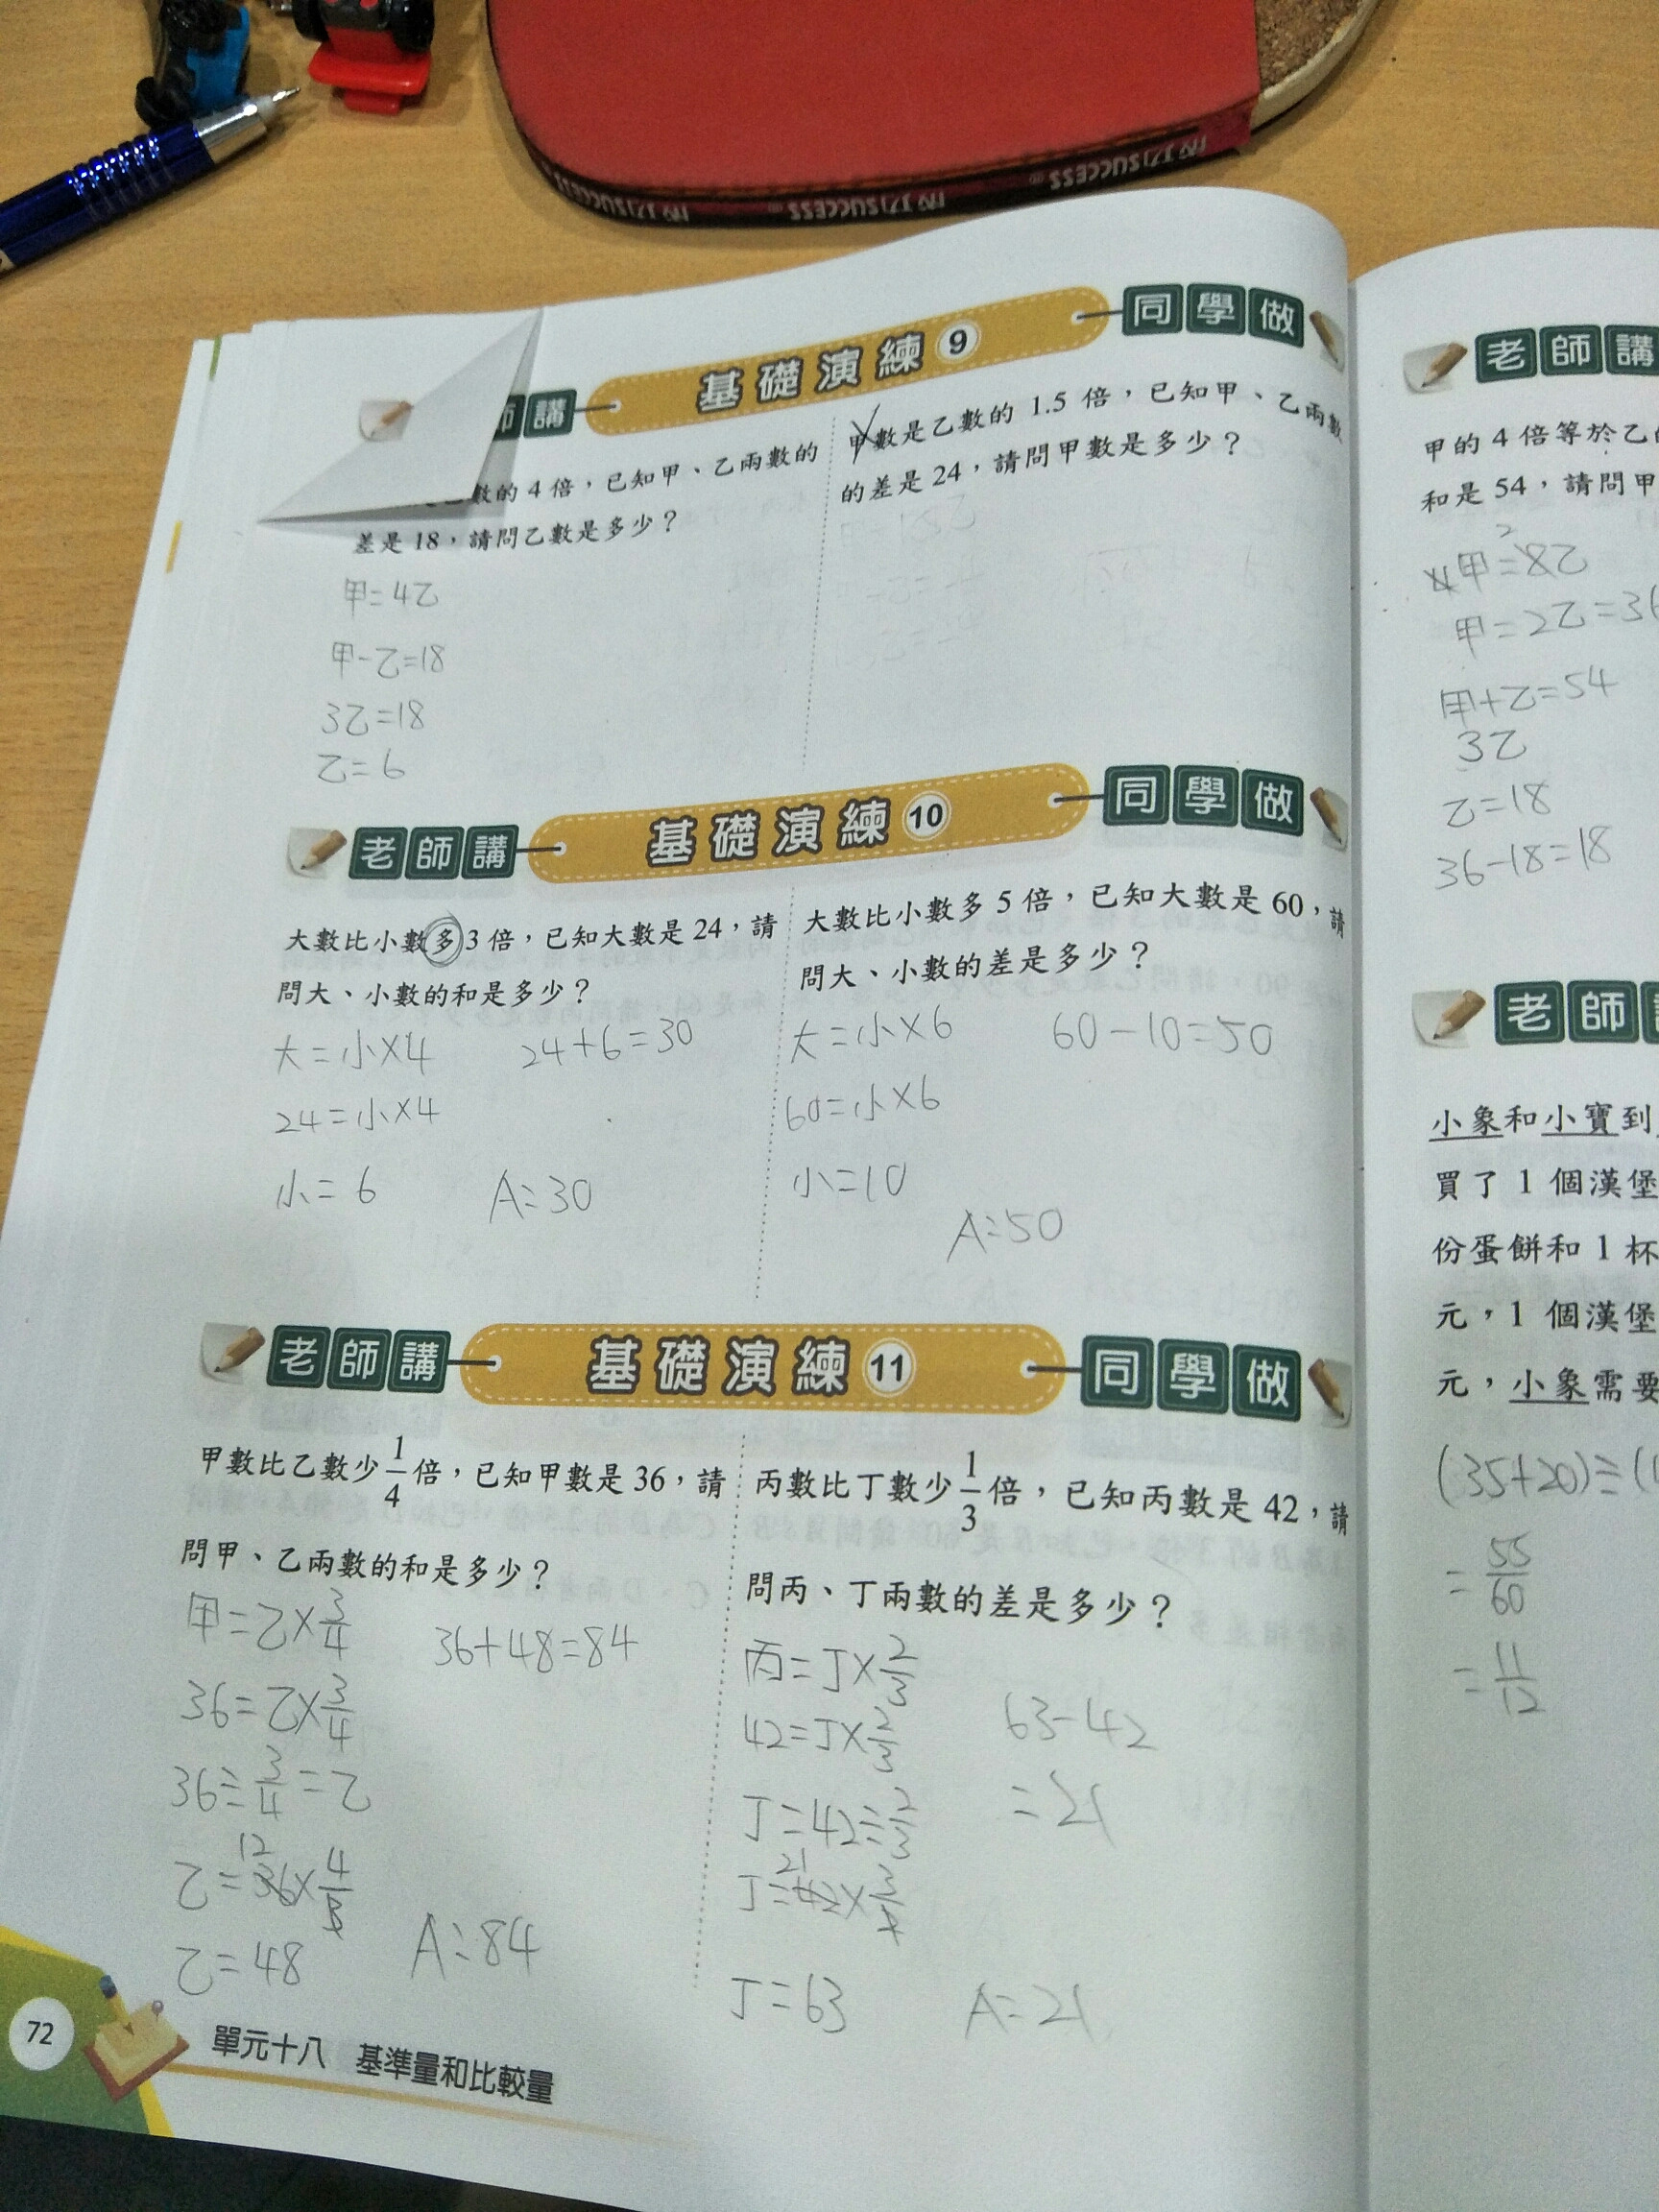 成功 SUCCESS
成功 SUCCESS
成功 SUCCESS
師講
基礎演練 9
同學做
數的 4 倍，已知甲、乙兩數的
差是 18，請問乙數是多少？
甲=4乙
甲-乙=18
3乙=18
乙=6
甲數是乙數的 1.5 倍，已知甲、乙兩數
的差是 24，請問甲數是多少？
老師講
基礎演練 10
同學做
大數比小數多 3 倍，已知大數是 24，請
問大、小數的和是多少？
大=小×4
24+6=30
24=小×4
小=6
A:30
大數比小數多 5 倍，已知大數是 60，請
問大、小數的差是多少？
大=小×6
60-10=50
60=小×6
小=10
A:50
老師講
基礎演練 11
同學做
甲數比乙數少 1/4 倍，已知甲數是 36，請
問甲、乙兩數的和是多少？
甲=乙×3/4
36+48=84
36=乙×3/4
36÷3/4=乙
12
乙=36×4/3
乙=48
A:84
丙數比丁數少 1/3 倍，已知丙數是 42，請
問丙、丁兩數的差是多少？
丙=丁×2/3
42=丁×2/3
63-42
丁=42÷2/3
=21
21
丁=42×3/2
丁=63
A:21
72
單元十八 基準量和比較量
老師講
甲的 4 倍等於乙
和是 54，請問甲
2
4甲=8乙
甲=2乙=36
甲+乙=54
3乙
乙=18
36-18=18
老師
小象和小寶到
買了 1 個漢堡
份蛋餅和 1 杯
元，1 個漢堡
元，小象需要
(35+20)÷(1
=55/60
=11/12